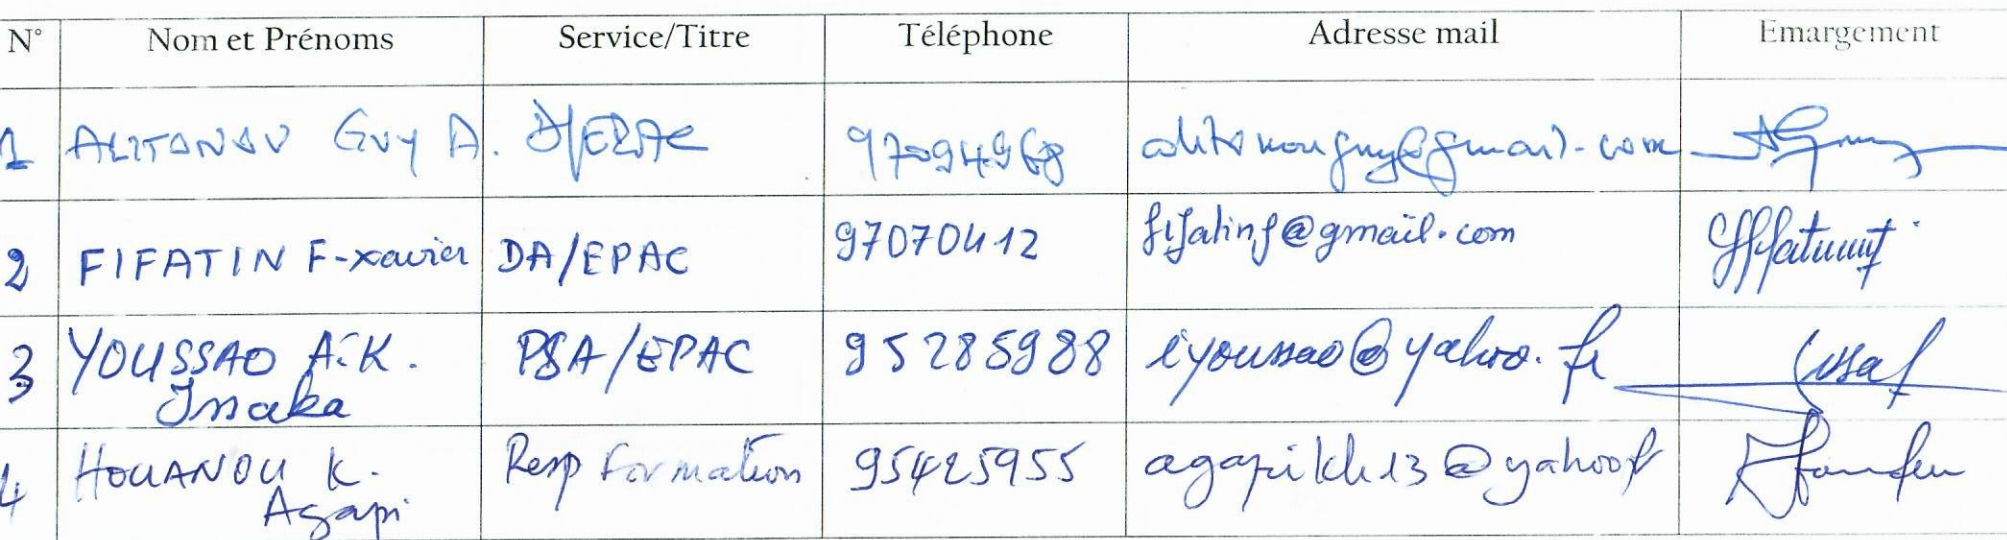 N° Nom et Prénoms Service/Titre Téléphone Adresse mail Emargement
1 ALITONOU Guy A. D/EPAC 97094968 alitonouguy@gmail.com
2 FIFATIN F-xavier DA/EPAC 97070412 fifatinf@gmail.com
3 YOUSSAO A.K. Issaka PSA/EPAC 95285988 iyoussao@yahoo.fr
4 HOUANOU K. Agapi Resp Formation 95425955 agapikh13@yahoo.fr